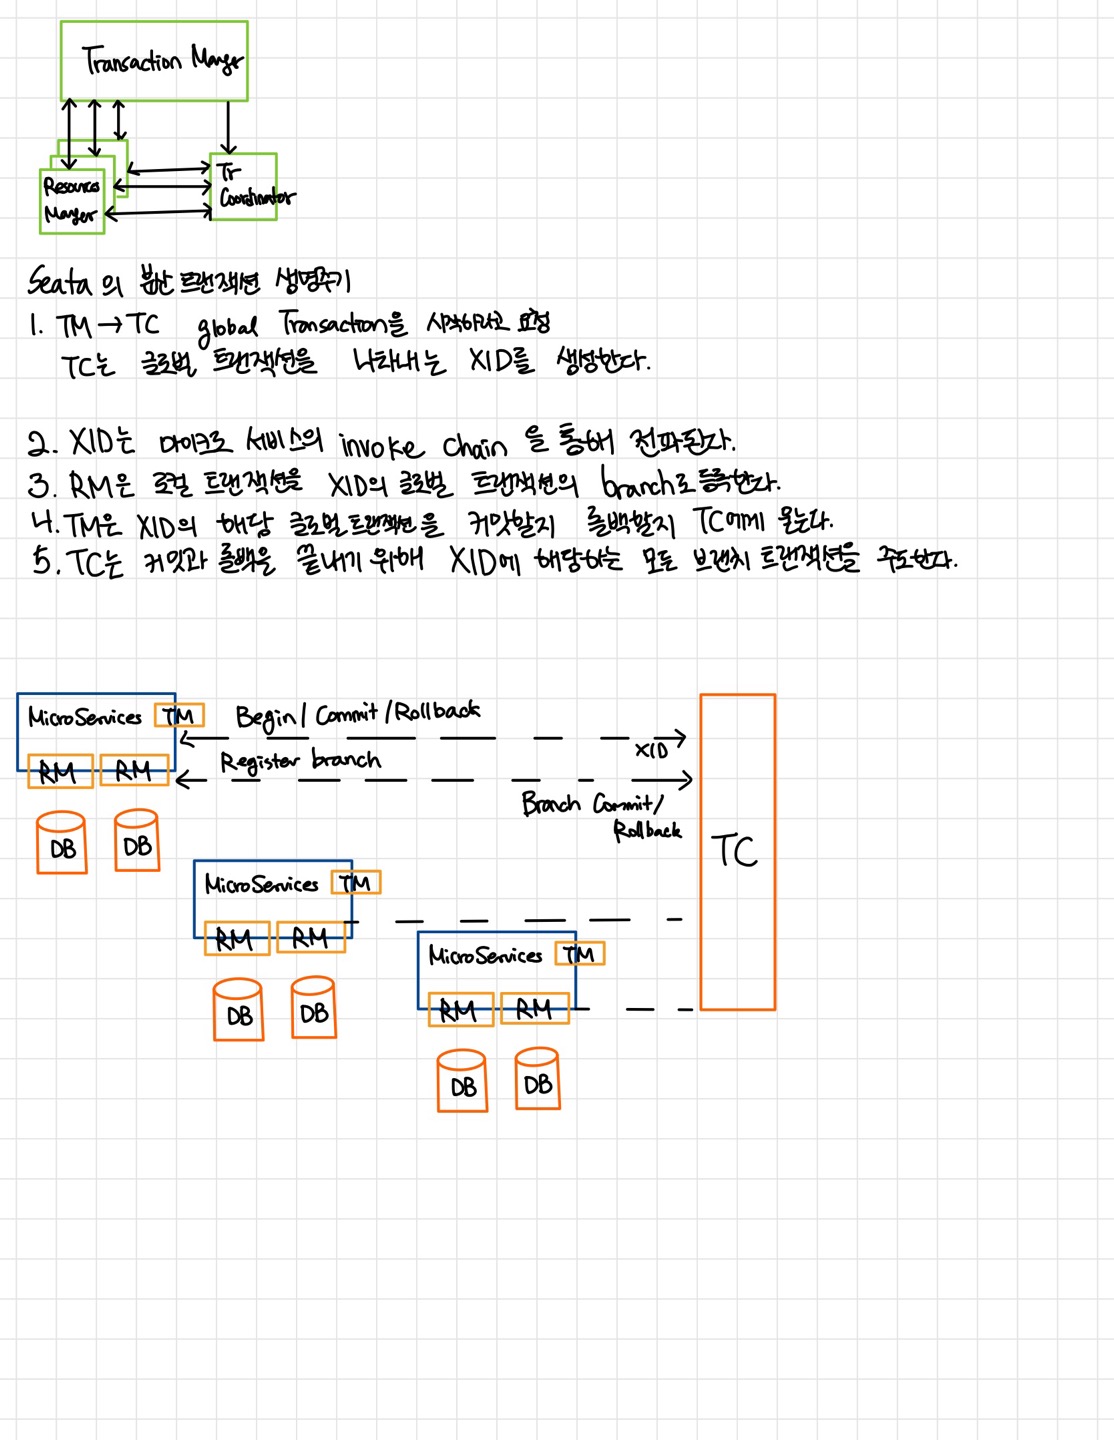 Transaction Manger
Resources
Manger
Tr
Coordinator
Seata의 분산 트랜잭션 생명주기
1. TM → TC global Transaction을 시작하라고 요청
TC는 글로벌 트랜잭션을 나타내는 XID를 생성한다.
2. XID는 마이크로 서비스의 invoke chain 을 통해 전파된다.
3. RM은 로컬 트랜잭션을 XID의 글로벌 트랜잭션의 branch로 등록한다.
4. TM은 XID의 해당 글로벌 트랜잭션을 커밋할지 롤백할지 TC에게 묻는다.
5. TC는 커밋과 롤백을 끝내기 위해 XID에 해당하는 모든 브랜치 트랜잭션을 주도한다.
MicroServices TM
Begin/ Commit/Rollback
XID
RM RM
Register branch
Branch Commit/
Rollback
DB DB
TC
MicroServices TM
RM RM
DB DB
MicroServices TM
RM RM
DB DB